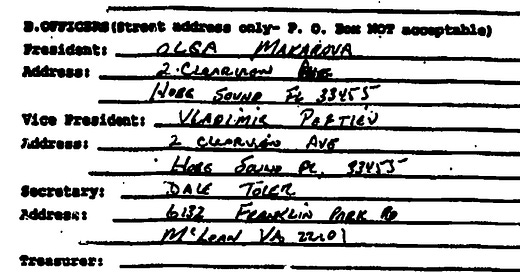 B.OFFICERS(Street address only- P. O. Box NOT acceptable)
President: OLGA MAKAROVA
Address: 2
HOBE SOUND FL 33455
Vice President: VLADIMIR
Address: 2 AVE
HOBE SOUND FL, 33455
Secretary: DALE TOLER
Address: 6132 FRANKLIN PARK RD
McLEAN VA 22101
Treasurer: